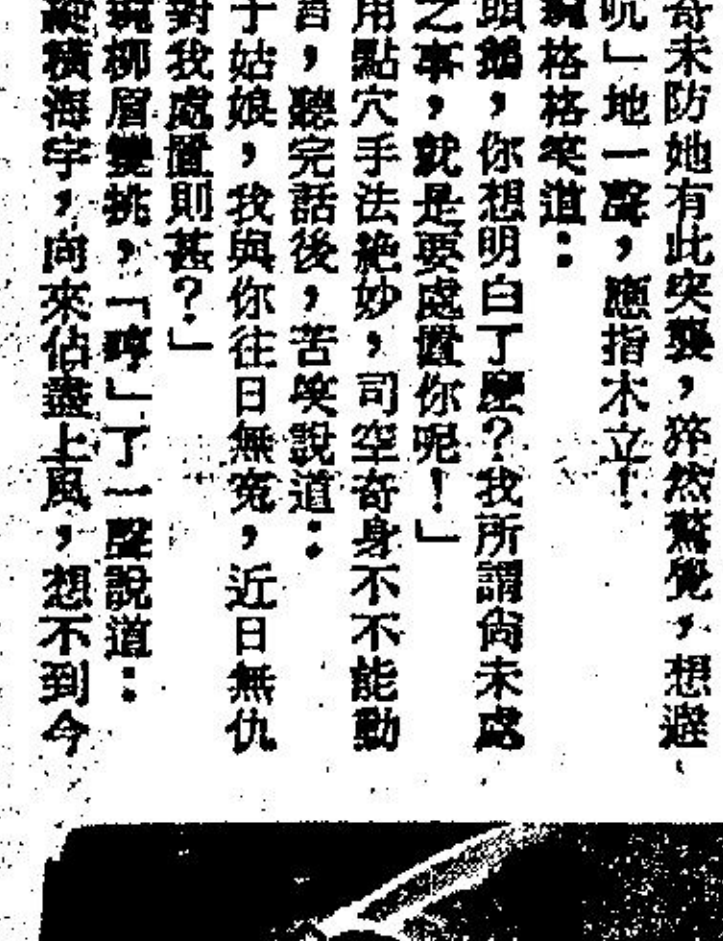 奇未防她有此突襲，猝然驚覺，想避、
吭」地一聲，應指木立！
琬格格笑道：
頭鵝，你想明白了麼？我所謂尙未處
之事，就是要處置你呢！」
用點穴手法絶妙，司空奇身不不能動
言，聽完話後，苦笑說道：
于姑娘，我與你往日無寃，近日無仇
對我處置則甚？」
琬柳眉雙挑，「哼」了一聲說道：
縱橫海宇，向來佔盡上風，想不到今